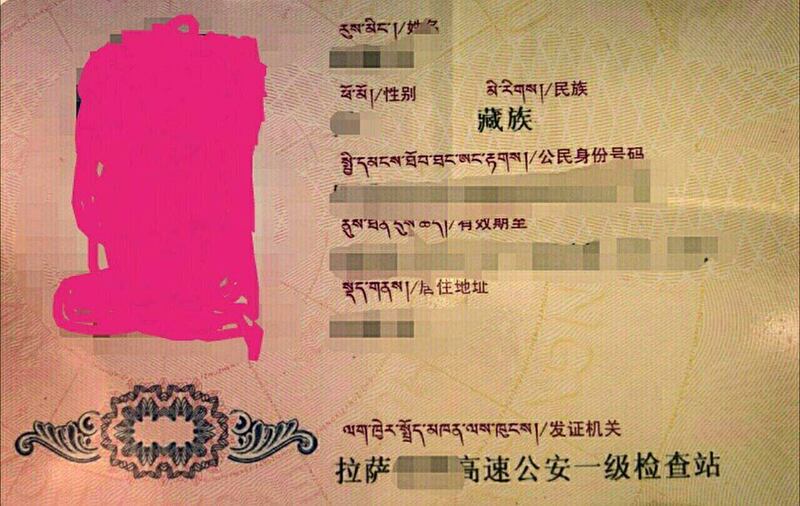 རུས་མིང་།/姓名
ཕོ་མོ།/性别 མི་རིགས།/民族
藏族
སྤྱི་དམངས་ཐོབ་ཐང་ཨང་རྟགས།/公民身份号码
ནུས་ཐོན་དུས་ཚོད།/有效期至
སྡོད་གནས།/居住地址
ལག་ཁྱེར་སྤྲོད་མཁན་ལས་ཁུངས།/发证机关
拉萨 高速公安一级检查站